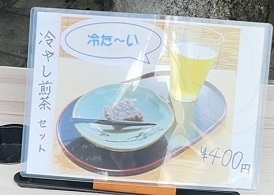 冷た〜い
冷やし煎茶セット
¥400円